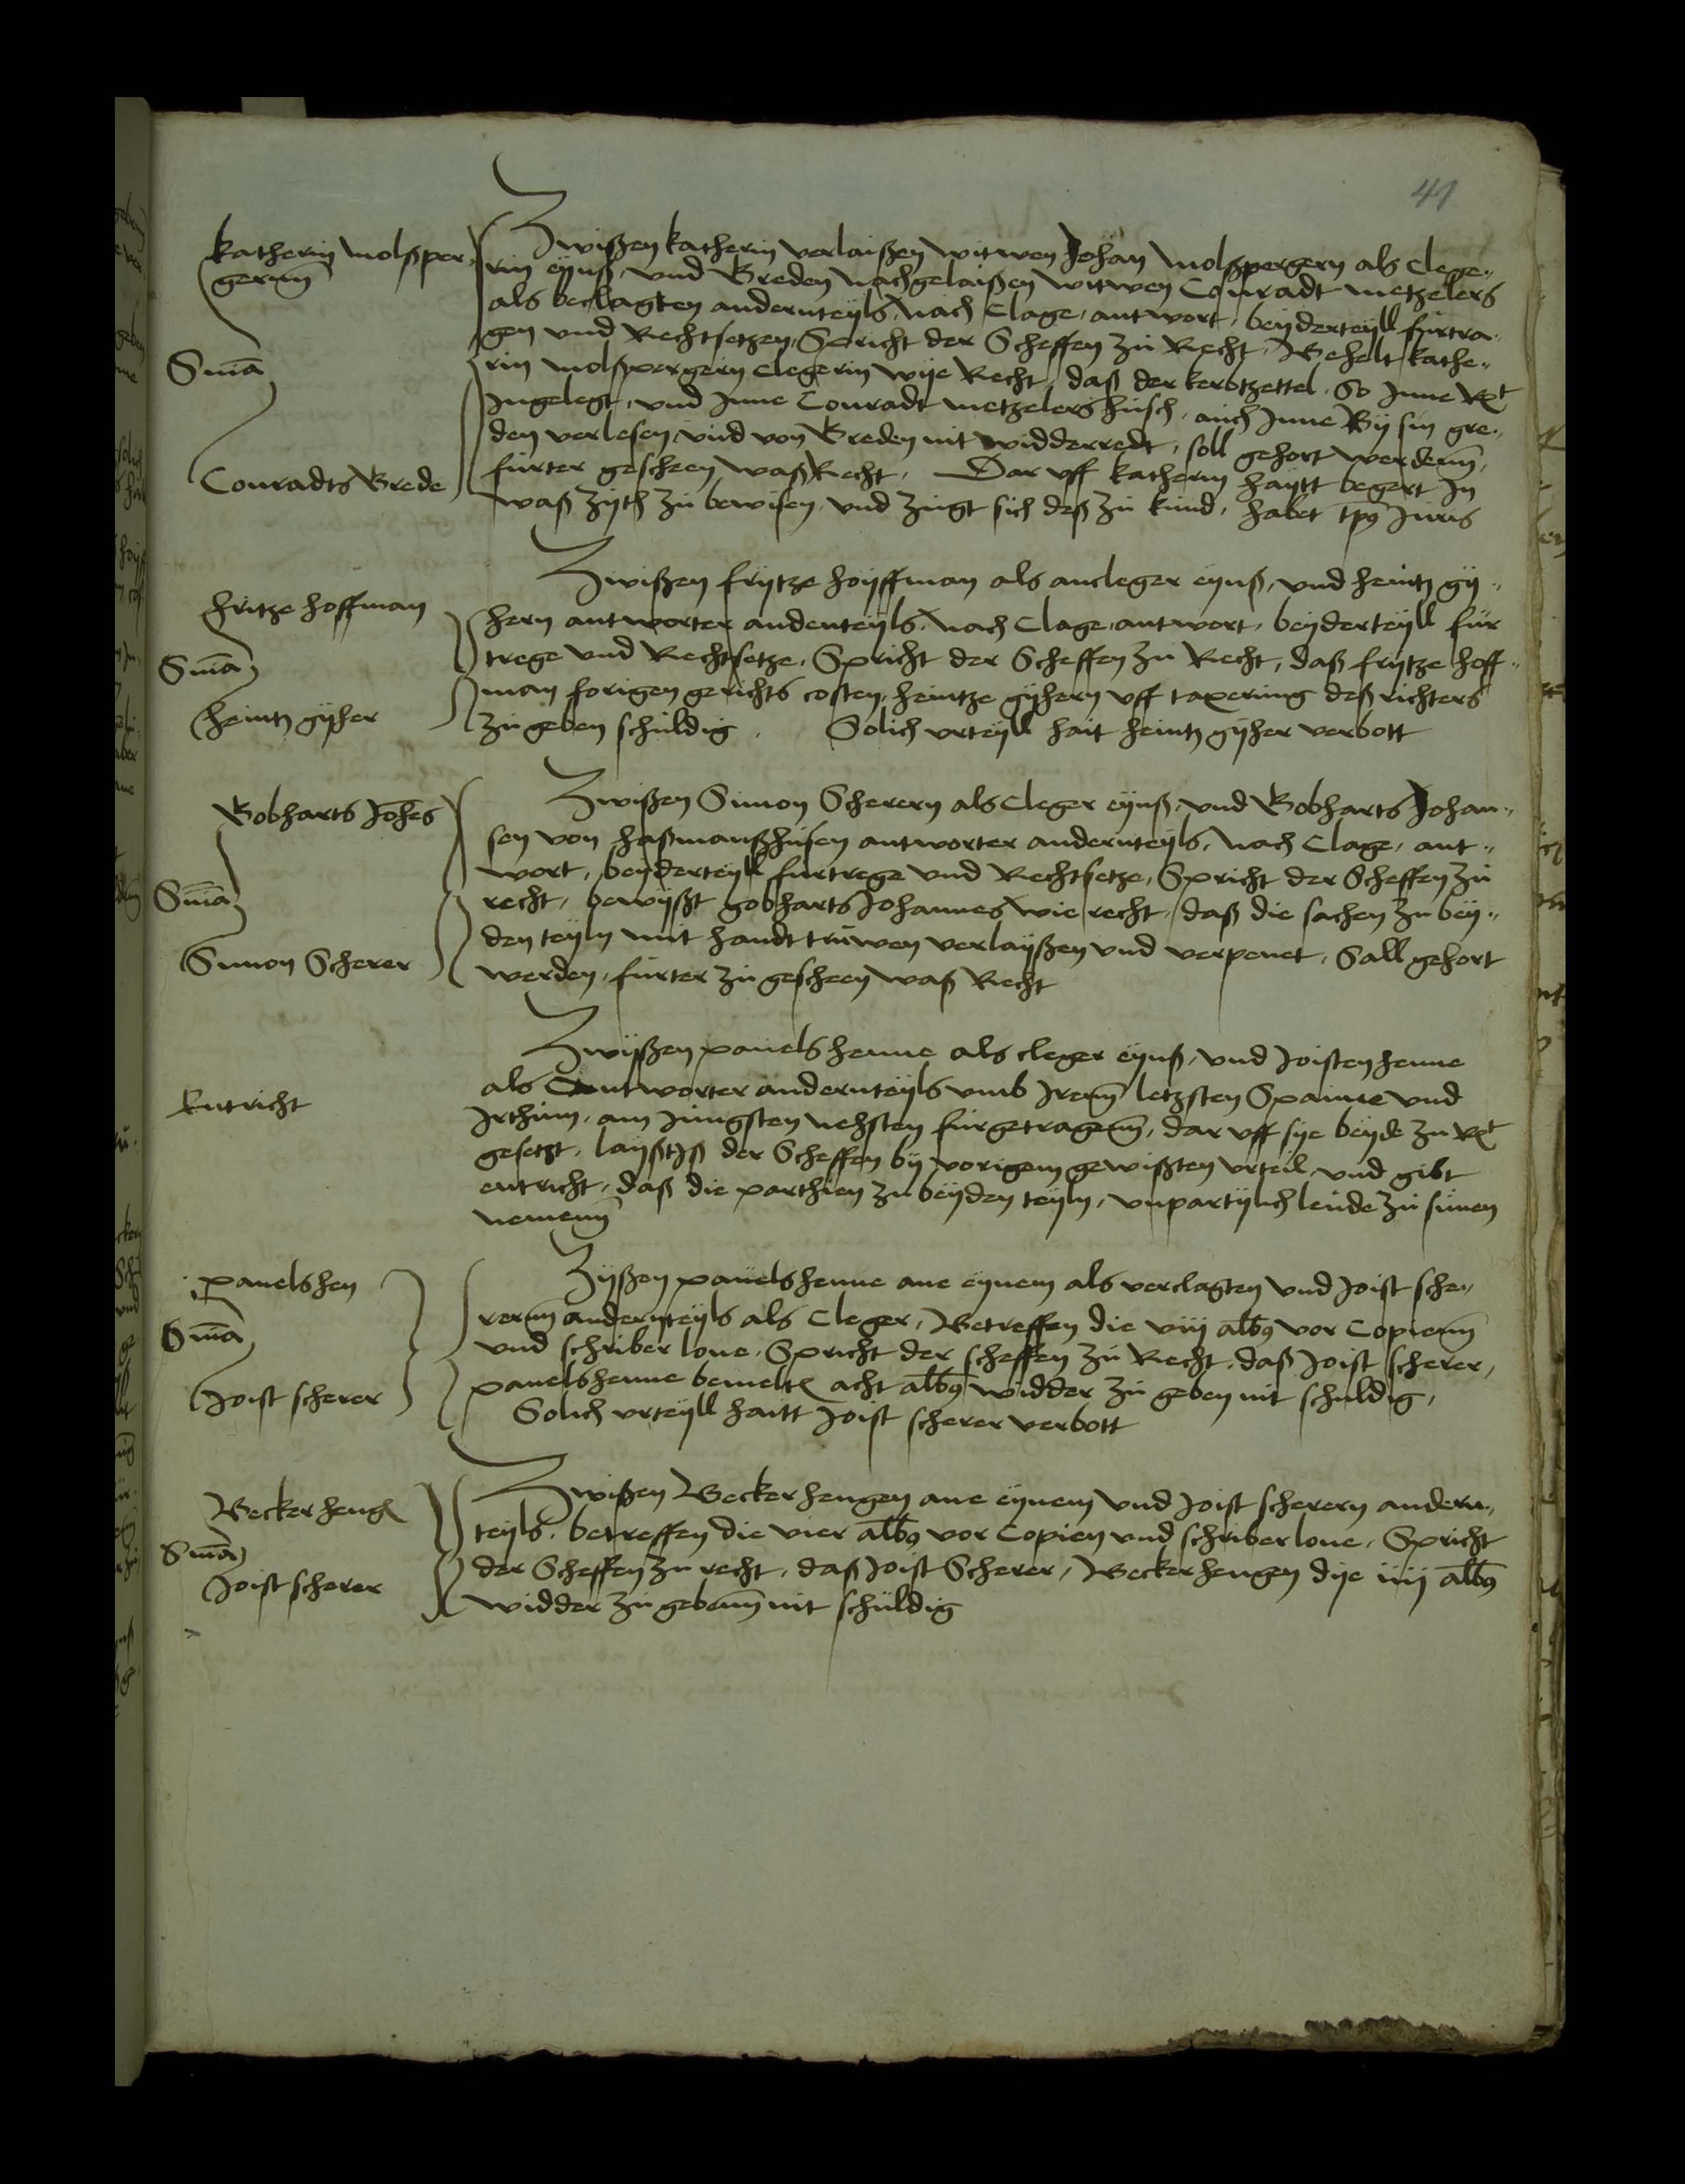 41
Katherin molsper
gerinn
Smā
Conradts Brede
Zwißen Katherin verlaißen witwen Johan Molßpergern als Clege„
rin eynß, und Breden nachgelaißen witwen Conradt metzelers
als beclagten andernteyls, Nach Clage, antwort, beyderteyll furtra„
gen und Rechtsetzen, Spricht der Scheffen zu Recht, Behelt Kathe„
rin Molßpergern Clegerin wye Recht, daß der kerbtzettel, So Inne Rt
Ingelegt, und Inne Conradt metzelers husch, auch Inne By sin gre„
den verlesen, und von Breden nit widderredt, soll gehort werdenn,
furter gescheen waß Recht, Dar uff Katherin haytt begert In
waß zyth zu bewisen, und zugt sich deß zu kund, habet tp9 Juris
Fritze hoffman
Smā
heintz gyher
Zwißen frytze hoyffman als ancleger eynß, und heintz gy„
hern antworter andenteyls, Nach Clage, antwort, beyderteyll fur
trege und Rechtsetze, Spricht der Scheffen zu Recht, daß frytze hoff„
man forigen gerichts costen, heintze gyhern uff taxering deß richters
zu geben schuldig. Solich urteyll hait heintz gyher verbott
Bobharts Johes
Smā
Simon Scherer
Zwißen Simon Scherern als Cleger eynß, und Bobharts Johan„
sen von haßmanßhusen antworter andernteyls, Nach Clage, ant„
wort, beyderteyll furtrege und Rechtsetze, Spricht der Scheffen zu
recht, bewyßt gobharts Johannes wie recht, daß die sachen zu bey„
den teyln mit handt truwen verlayßen und verpenet, Sall gehort
werden, furter zu gescheen waß Recht
Entricht
Zwyßen pauels henne als cleger eynß, und Joisten henne
als Antworter andernteyls umb Irenn letzsten Spanne und
Irthum, am Jungsten nehsten furgetragenn, dar uff sye beyde zu Rt
gesetzt, layßt Iß der Scheffen by vorigem gewißten urteil, und gibt
entricht, daß die parthien zu beyden teyln, unpartylich leude zu sunen
nemenn
pauelshen
Smā
Joist scherer
Zyßen pauelshenne ane eynem als verclagten und Joist sche„
rernn andernteyls als Cleger, Betreffen die viii alb9 vor Copienn
und schriber lone, Spricht der scheffen zu Recht, daß Joist scherer,
pauelshenne bemelt acht alb9 widder zu geben nit schuldig,
Solich urteyll haitt Joist scherer verbott
Becker heng
Smā
Joist scherer
Zwißen Becker hengen ane eynem und Joist scherern andern„
teyls, betreffen die vier alb9 vor Copien und schriber lone, Spricht
der Scheffen zu recht, daß Joist Scherer, Becker hengen dye iiij alb9
widder zu gebenn nit schuldig